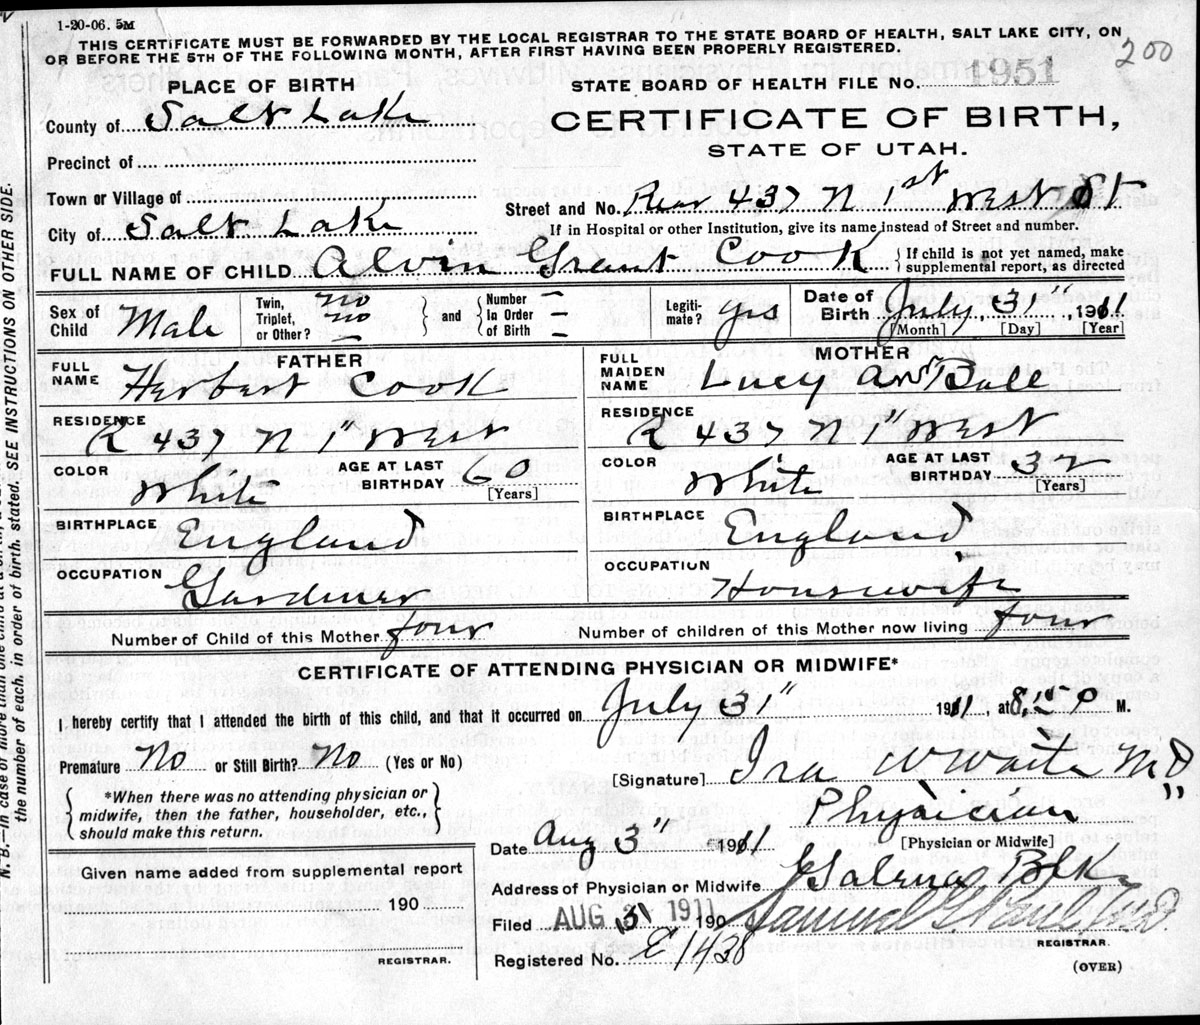 1-20-06. 5M
THIS CERTIFICATE MUST BE FORWARDED BY THE LOCAL REGISTRAR TO THE STATE BOARD OF HEALTH, SALT LAKE CITY, ON
OR BEFORE THE 5TH OF THE FOLLOWING MONTH, AFTER FIRST HAVING BEEN PROPERLY REGISTERED.
200
PLACE OF BIRTH
STATE BOARD OF HEALTH FILE No. 1951
County of Salt Lake
CERTIFICATE OF BIRTH,
STATE OF UTAH.
Precinct of
Town or Village of
Street and No. Rear 437 N 1st West St
City of Salt Lake
If in Hospital or other Institution, give its name instead of Street and number.
FULL NAME OF CHILD Alvin Grant Cook { If child is not yet named, make supplemental report, as directed
Sex of Child Male
Twin, Triplet, or Other? no no –
and Number In Order of Birth – – –
Legitimate? yes
Date of Birth July, 31", 1911
[Month] [Day] [Year]
FATHER
MOTHER
FULL NAME Herbert Cook
FULL MAIDEN NAME Lucy Ann Ball
RESIDENCE R 437 N 1" West
RESIDENCE R 437 N 1" West
COLOR White AGE AT LAST BIRTHDAY 60 [Years]
COLOR White AGE AT LAST BIRTHDAY 32 [Years]
BIRTHPLACE England
BIRTHPLACE England
OCCUPATION Gardiner
OCCUPATION Housewife
Number of Child of this Mother four
Number of children of this Mother now living four
CERTIFICATE OF ATTENDING PHYSICIAN OR MIDWIFE*
I hereby certify that I attended the birth of this child, and that it occurred on July 31" 1911, at 8:50 P M.
Premature No or Still Birth? No (Yes or No)
[Signature] Ira W Waite MD
*When there was no attending physician or midwife, then the father, householder, etc., should make this return.
Physician "
[Physician or Midwife]
Date Aug 3" 1911
Given name added from supplemental report
190
REGISTRAR.
Address of Physician or Midwife
Filed AUG 3 1911 190
REGISTRAR.
Registered No. E 1428
(OVER)
the number of each, in order of birth, stated. SEE INSTRUCTIONS ON OTHER SIDE.